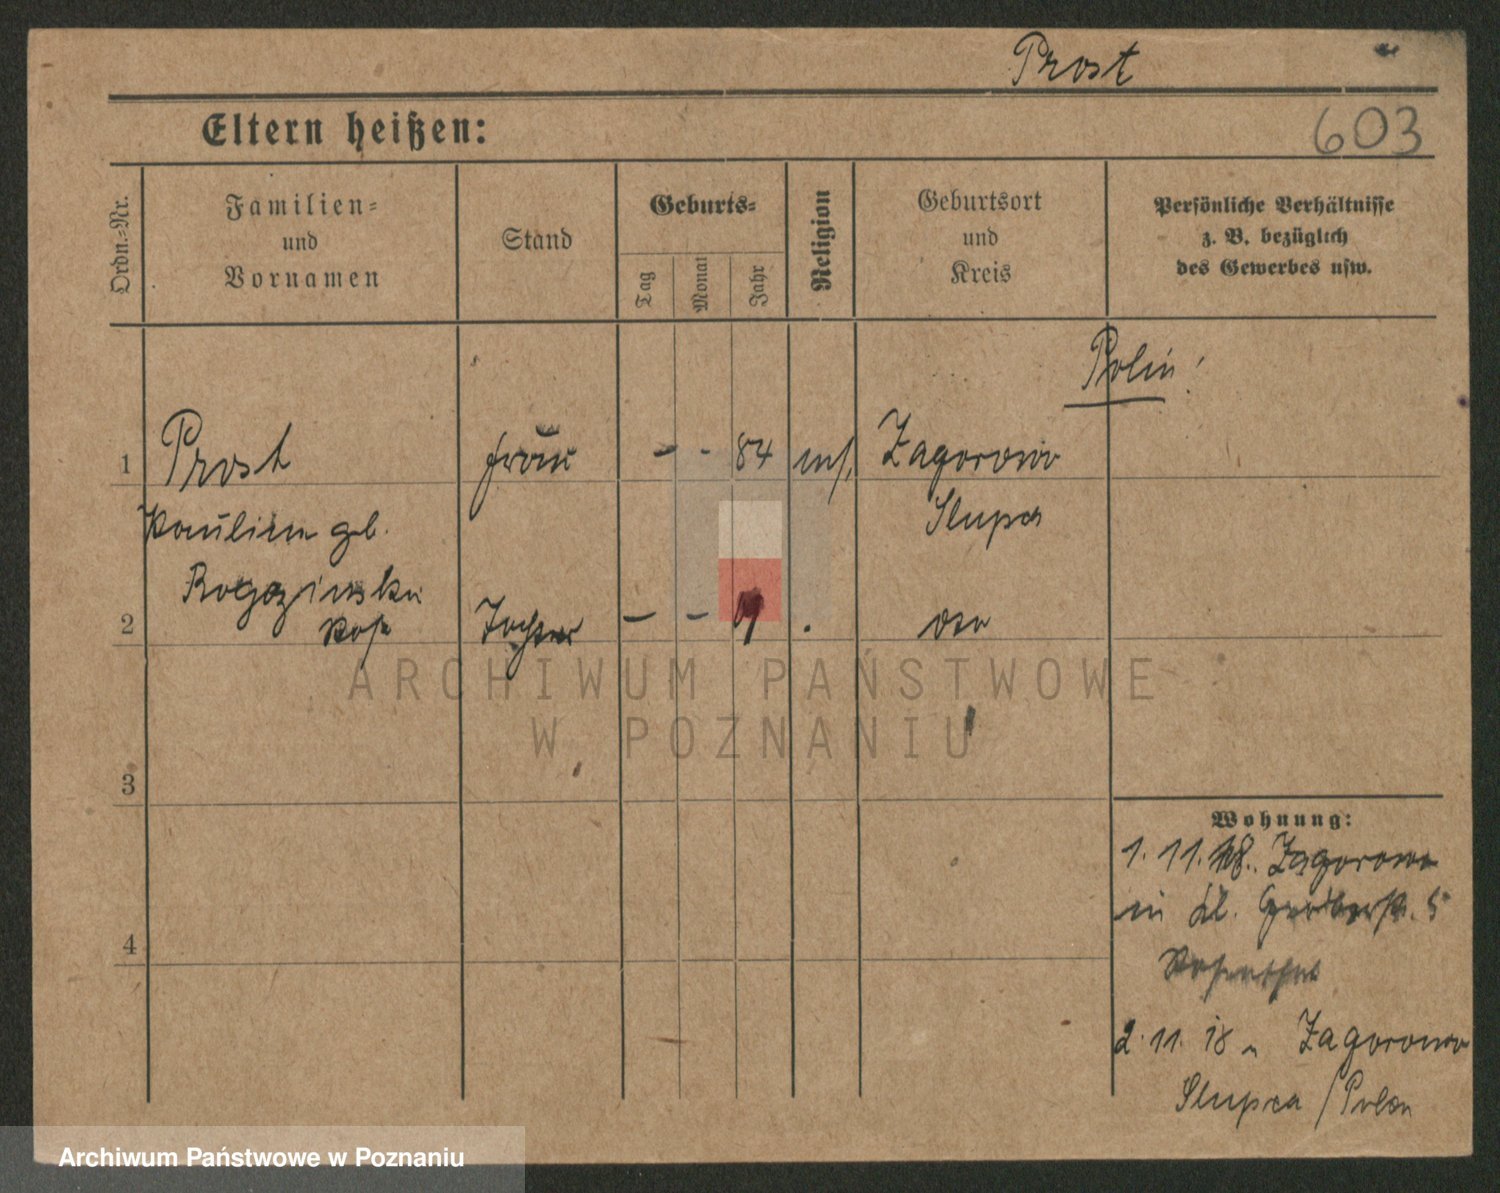 Prost
Eltern heißen:
603
Ordn.-Nr.
Familien-
und
Vornamen
Stand
Geburts-
Tag
Monat
Jahr
Religion
Geburtsort
und
Kreis
Persönliche Verhältnisse
z. B. bezüglich
des Gewerbes usw.
Polin!
1 Prost Frau - - 84 Zagorowo
Paulina geb. Slupca
Rogozinska
2 Rosa Tochter - - 9 . dso
ARCHIWUM PAŃSTWOWE
W POZNANIU
3
4
Wohnung:
1. 11. 18. Zagorowo
in kl. Gerberstr. 5
2. 11. 18 n Zagorowo
Slupca / Polen
Archiwum Państwowe w Poznaniu